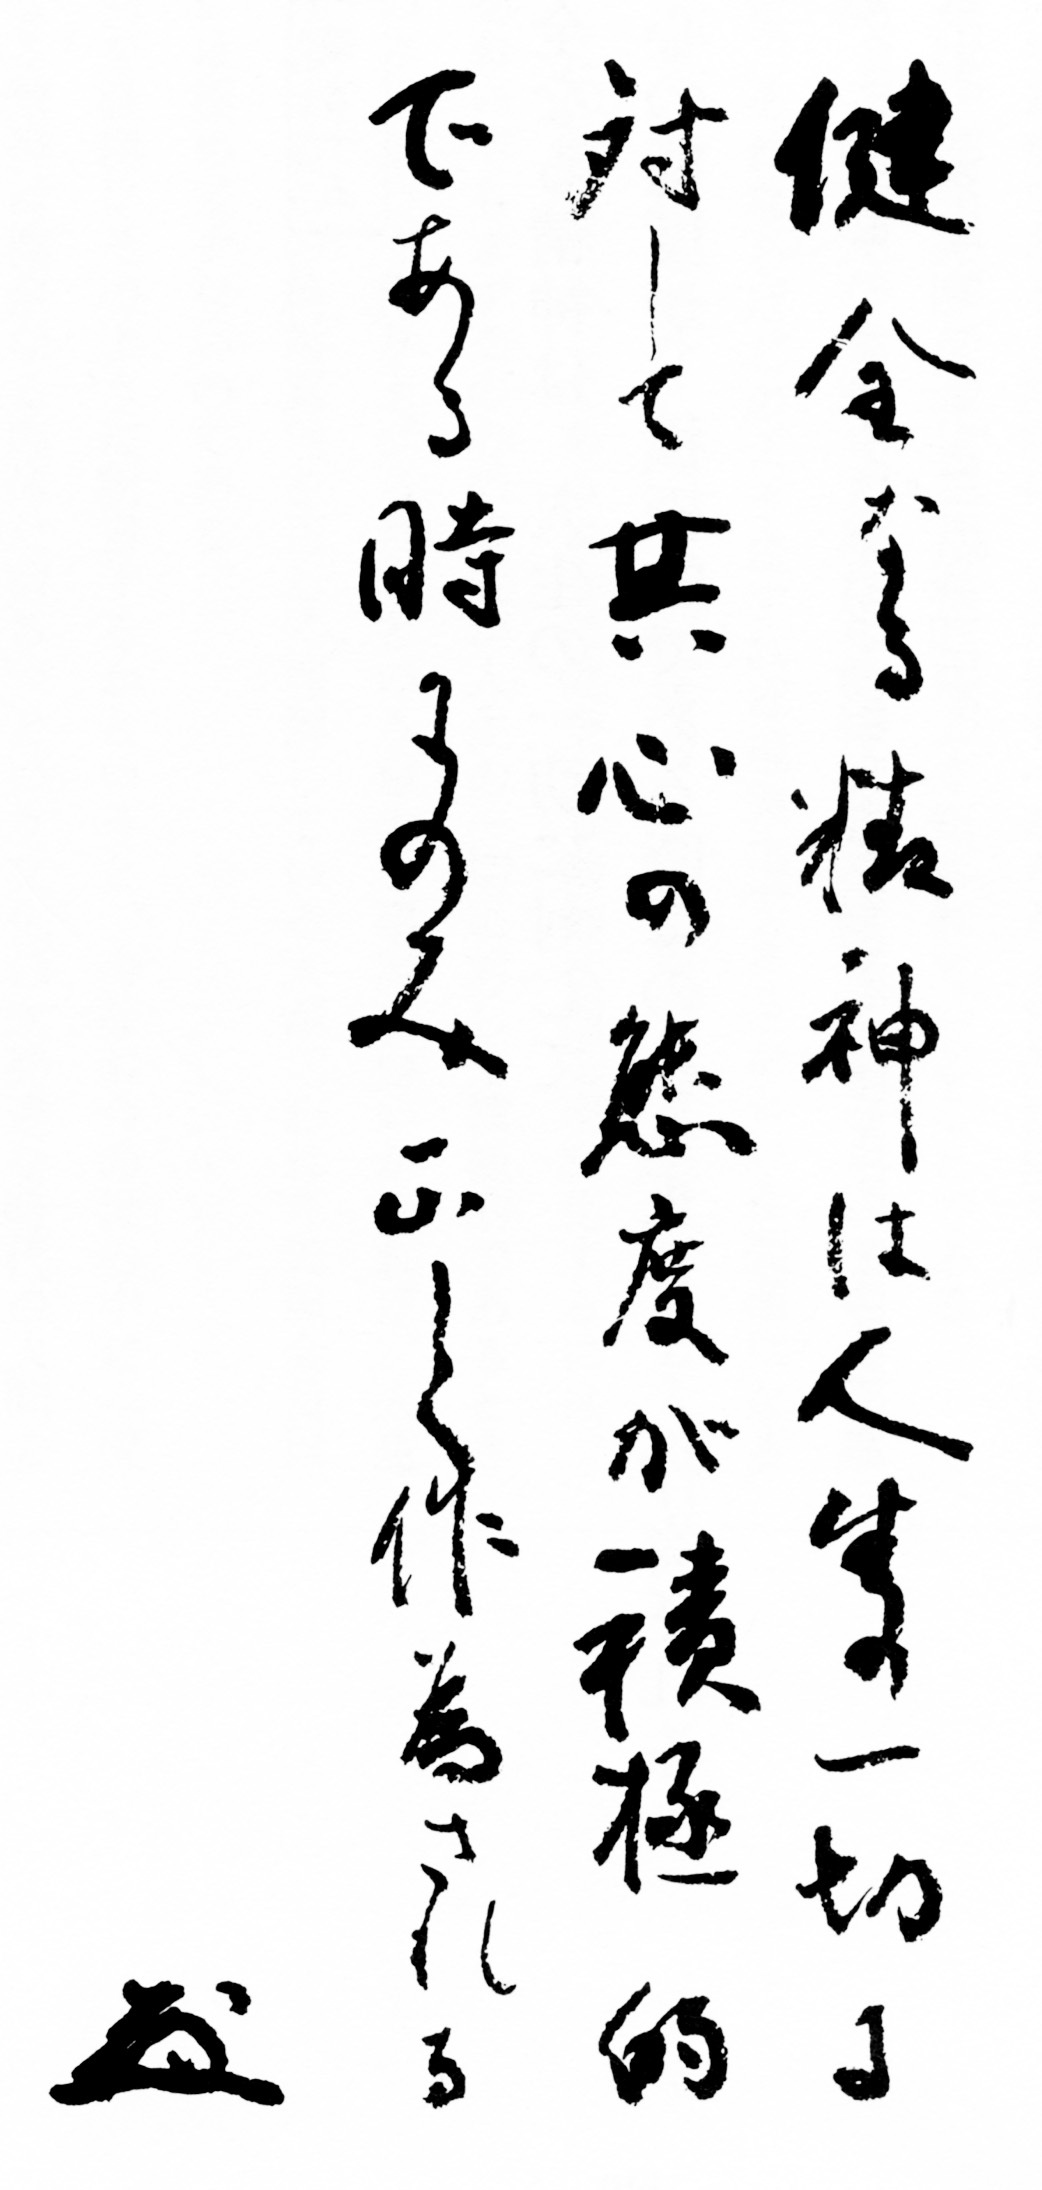 健全なる精神は人生の一切に
対して其心の態度が積極的
である時にのみ正しく作為される